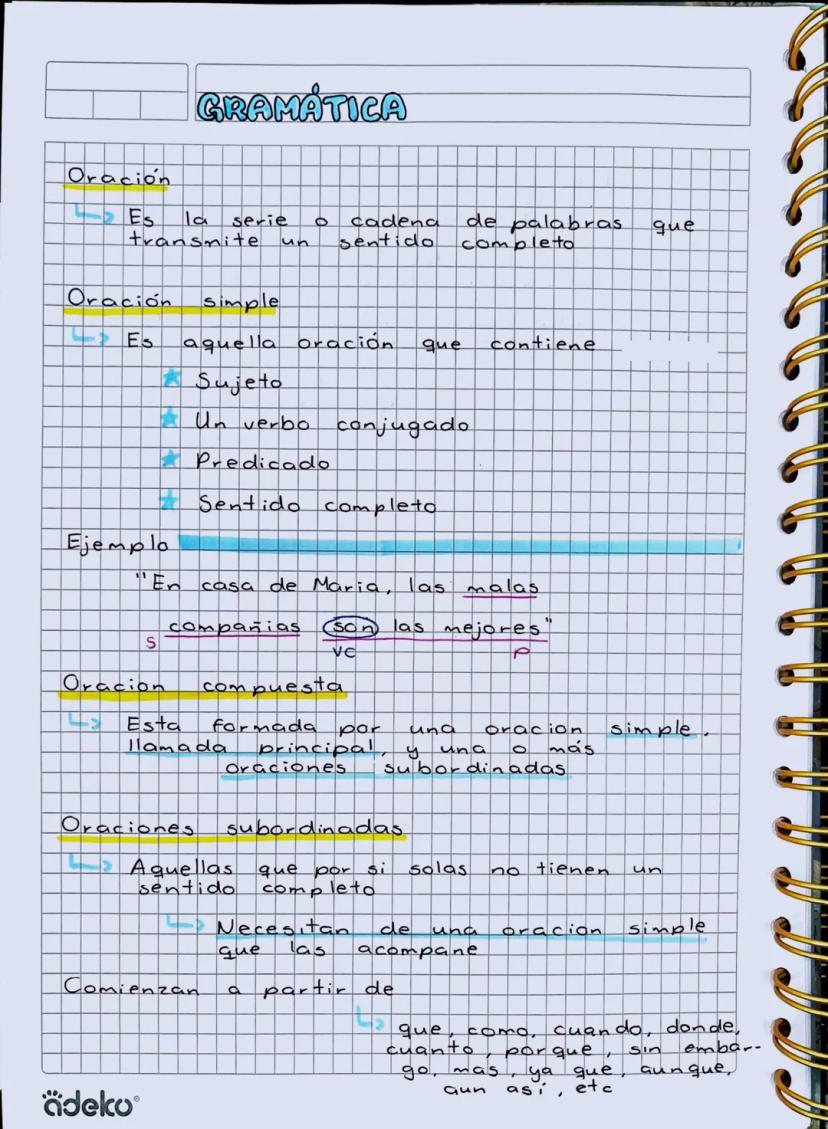 GRAMÁTICA
Oración
Es la serie o cadena de palabras que
transmite un sentido completo
Oración simple
Es aquella oración que contiene
Sujeto
Un verbo conjugado
Predicado
Sentido completo
Ejemplo
"En casa de Maria, las malas
compañias son las mejores"
S VC P
Oracion compuesta
Esta formada por una oracion simple,
llamada principal, y una o más
oraciones subordinadas
Oraciones subordinadas
Aquellas que por si solas no tienen un
sentido completo
Necesitan de una oracion simple
que las acompane
Comienzan a partir de
que, como, cuando, donde,
cuanto, porque, sin embar--
go, mas, ya que, aunque,
aun asi, etc
ädeko®